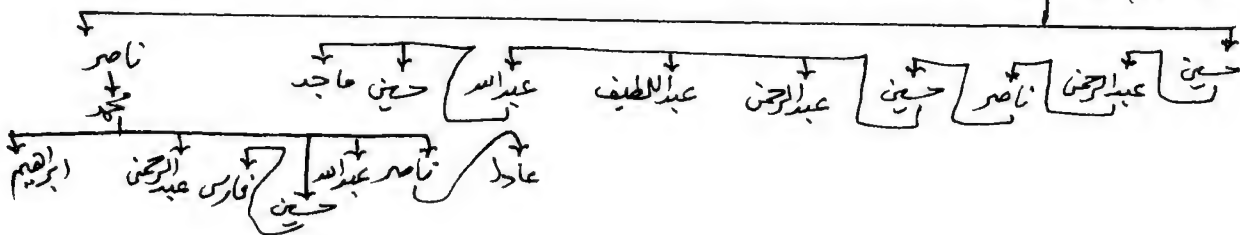 ناصر
حسين عبدالرحمن ناصر حسين عبدالرحمن عبداللطيف عبدالله حسين ماجد
محمد
عادل ناصر عبدالله حسين فارس عبدالرحمن ابراهيم